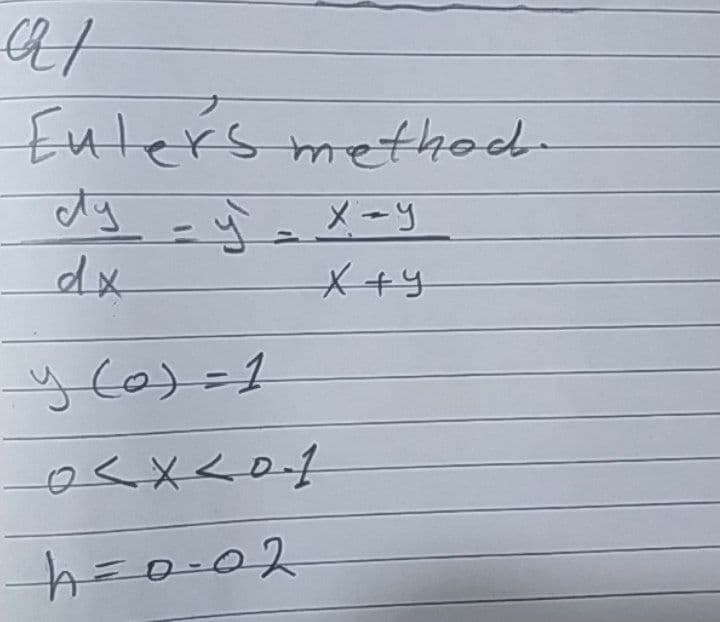 Q1/
Euler's method.
dy/dx = y' = x-y/x+y
y(0)=1
0<x<0.1
h=0.02